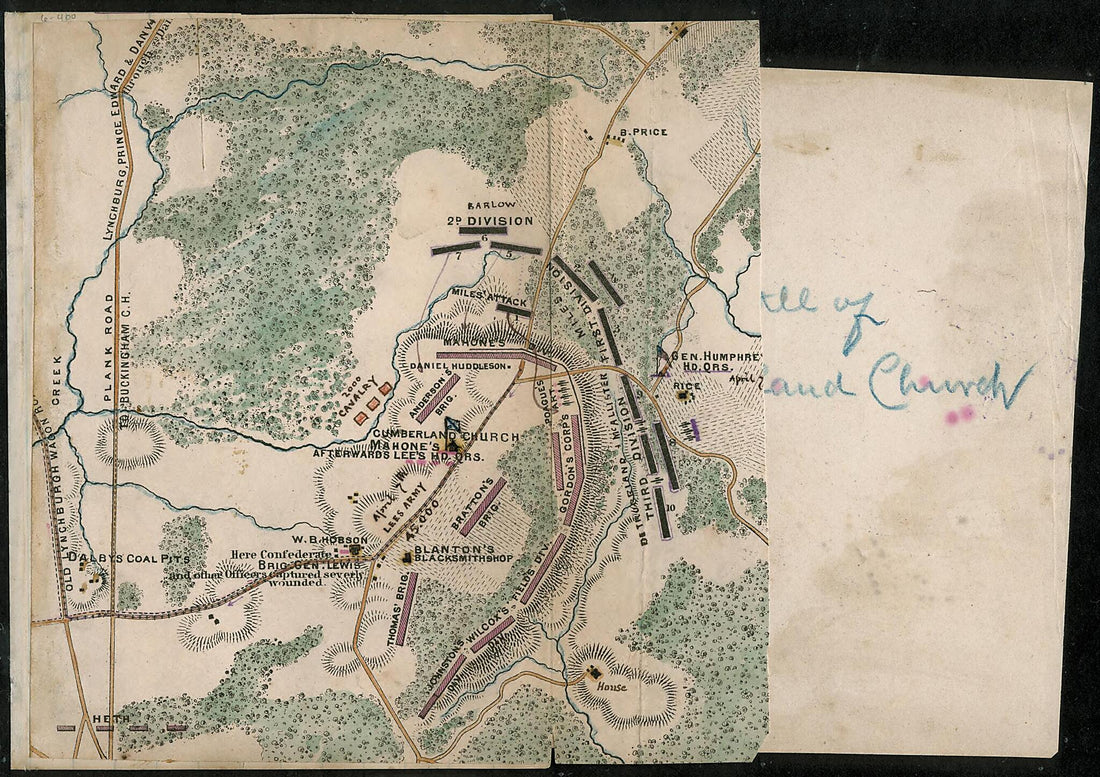 6-400
LYNCHBURG, PRINCE EDWARD &
B. PRICE
BARLOW
2D DIVISION
6
7
5
MILES' ATTACK
MILES'
FIRST DIVISION
MAHONE'S
DANIEL HUDDLESON
GEN. HUMPHREY
HD. QRS.
April 7
RICE
PLANK ROAD
TO BUCKINGHAM C.H.
CREEK
2000
CAVALRY
ANDERSON'S
BRIG.
POAGUES
ARTY
McALLISTER
9
8
CUMBERLAND CHURCH
MAHONE'S
AFTERWARDS LEE'S HD. QRS.
GORDON'S CORPS
DE TROBRIAND
THIRD DIVISION
10
April 7
LEES ARMY
45.000
BRATTON'S
BRIG.
W. B. HOBSON
Here Confederate
BRIG. GEN. LEWIS
and other Officers captured severly
wounded.
BLANTON'S
BLACKSMITHSHOP
OLD LYNCHBURG WAGON RD.
DALBYS COAL PITS
THOMAS' BRIG.
FIELD'S DIV.
WILCOX'S
JOHNSTON'S
House
HETH
ll of
land Church